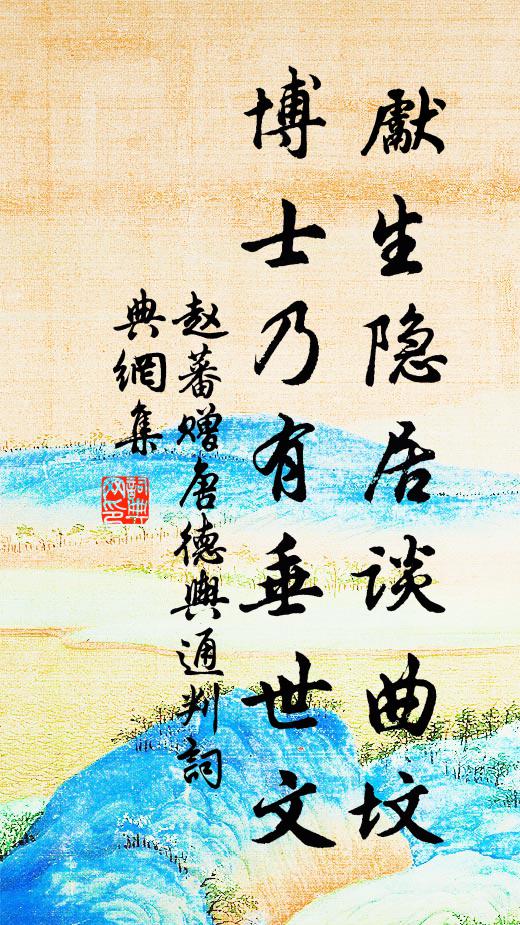 獻生隐居谈曲坟
博士乃有垂世文
赵蕃赠唐德興通判詞
典網集